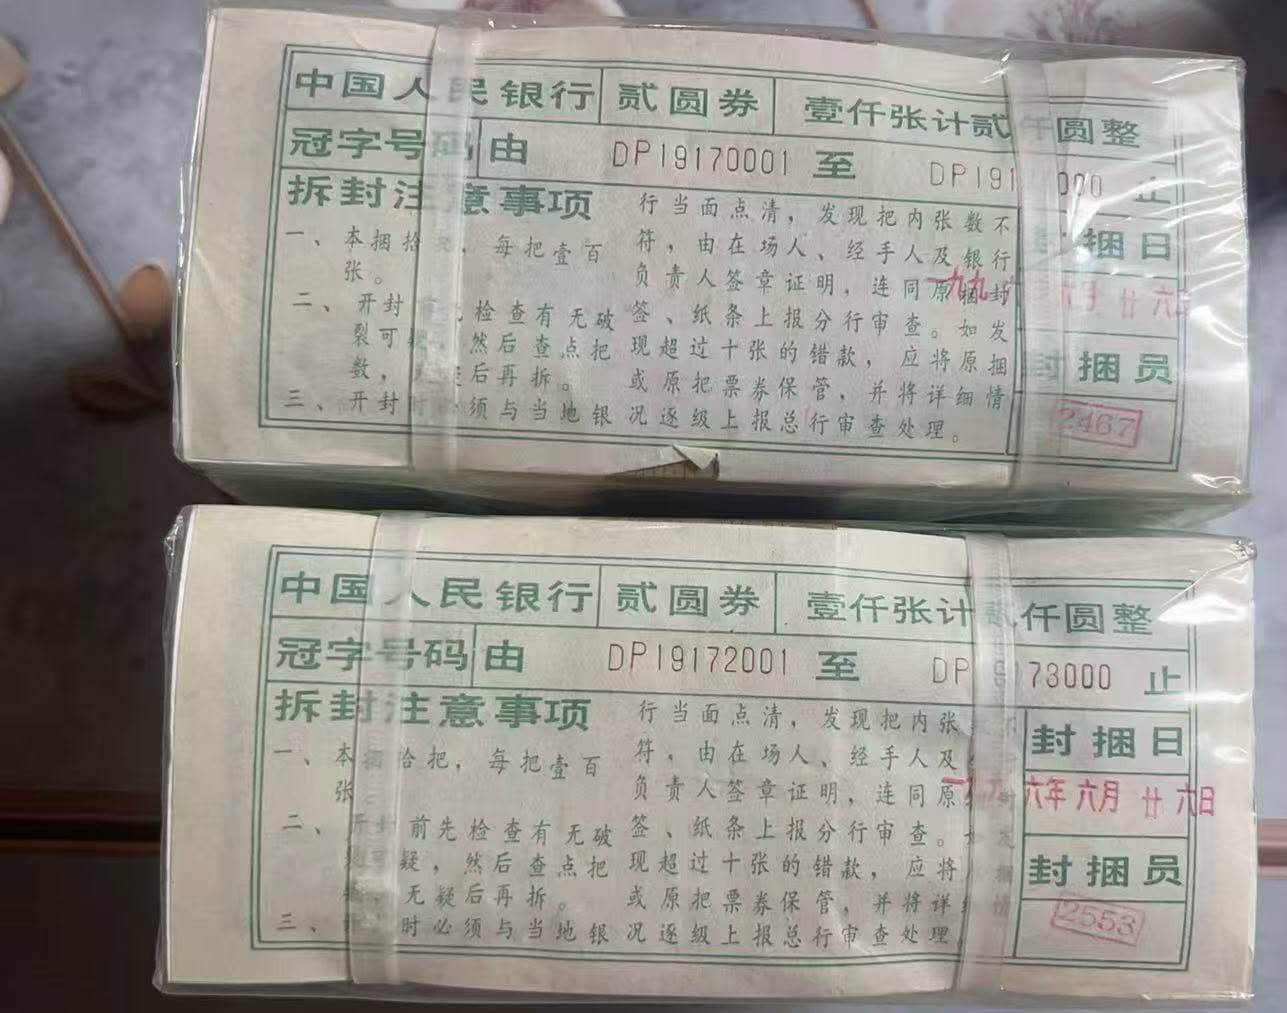 中国人民银行 贰圆券 壹仟张计贰仟圆整
冠字号码 由 DP19170001 至 DP191 000 止
拆封注意事项
一、本捆拾 ，每把壹百
张。
二、开封 检查有无破
裂可 然后查点把
数， 后再拆。
三、开封时必须与当地银
行当面点清，发现把内张数不
符，由在场人、经手人及银行
负责人签章证明，连同原捆封
签、纸条上报分行审查。如发
现超过十张的错款，应将原捆
或原把票券保管，并将详细情
况逐级上报总行审查处理。
封捆日
一九九 六月廿六
封捆员
2467
中国人民银行 贰圆券 壹仟张计贰仟圆整
冠字号码 由 DP19172001 至 DP 173000 止
拆封注意事项
一、本捆拾把，每把壹百
张
二、开封前先检查有无破
疑，然后查点把
无疑后再拆。
三、开 时必须与当地银
行当面点清，发现把内张
符，由在场人、经手人及
负责人签章证明，连同原
签、纸条上报分行审查。 发
现超过十张的错款，应将 捆
或原把票券保管，并将详 情
况逐级上报总行审查处理
封捆日
一九九六年六月廿六日
封捆员
2553